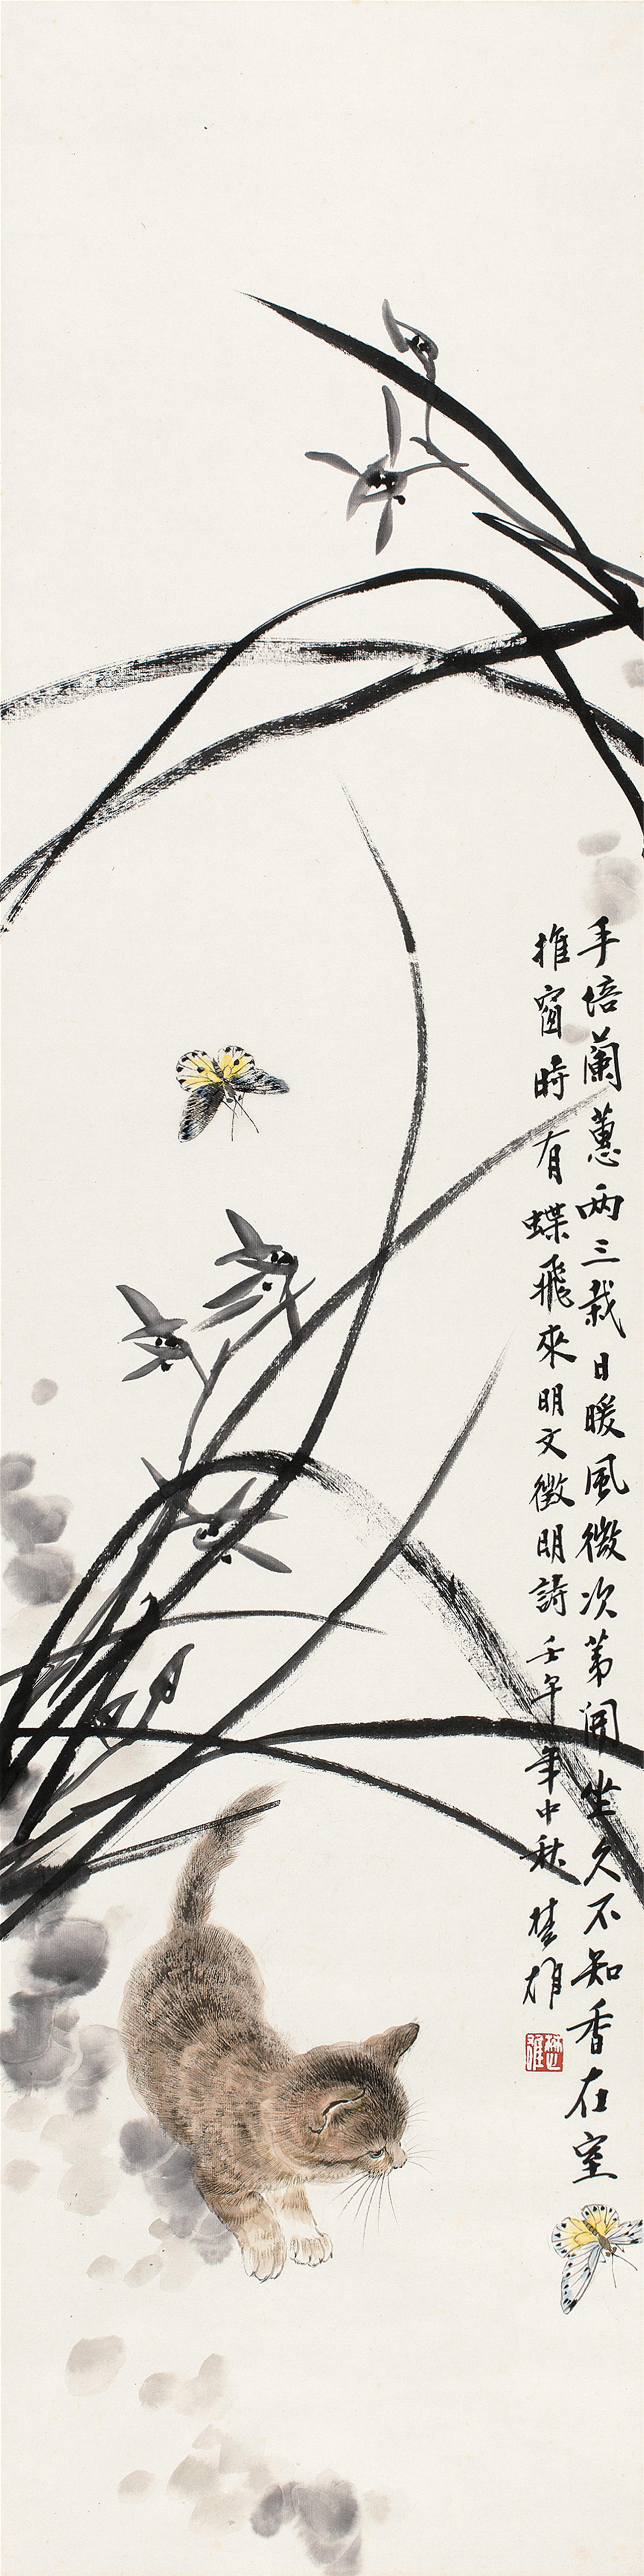 手培蘭蕙兩三栽日暖風微次第開坐久不知香在室
推窗時有蝶飛來明文徵明詩壬午年中秋楚雄
楚雄